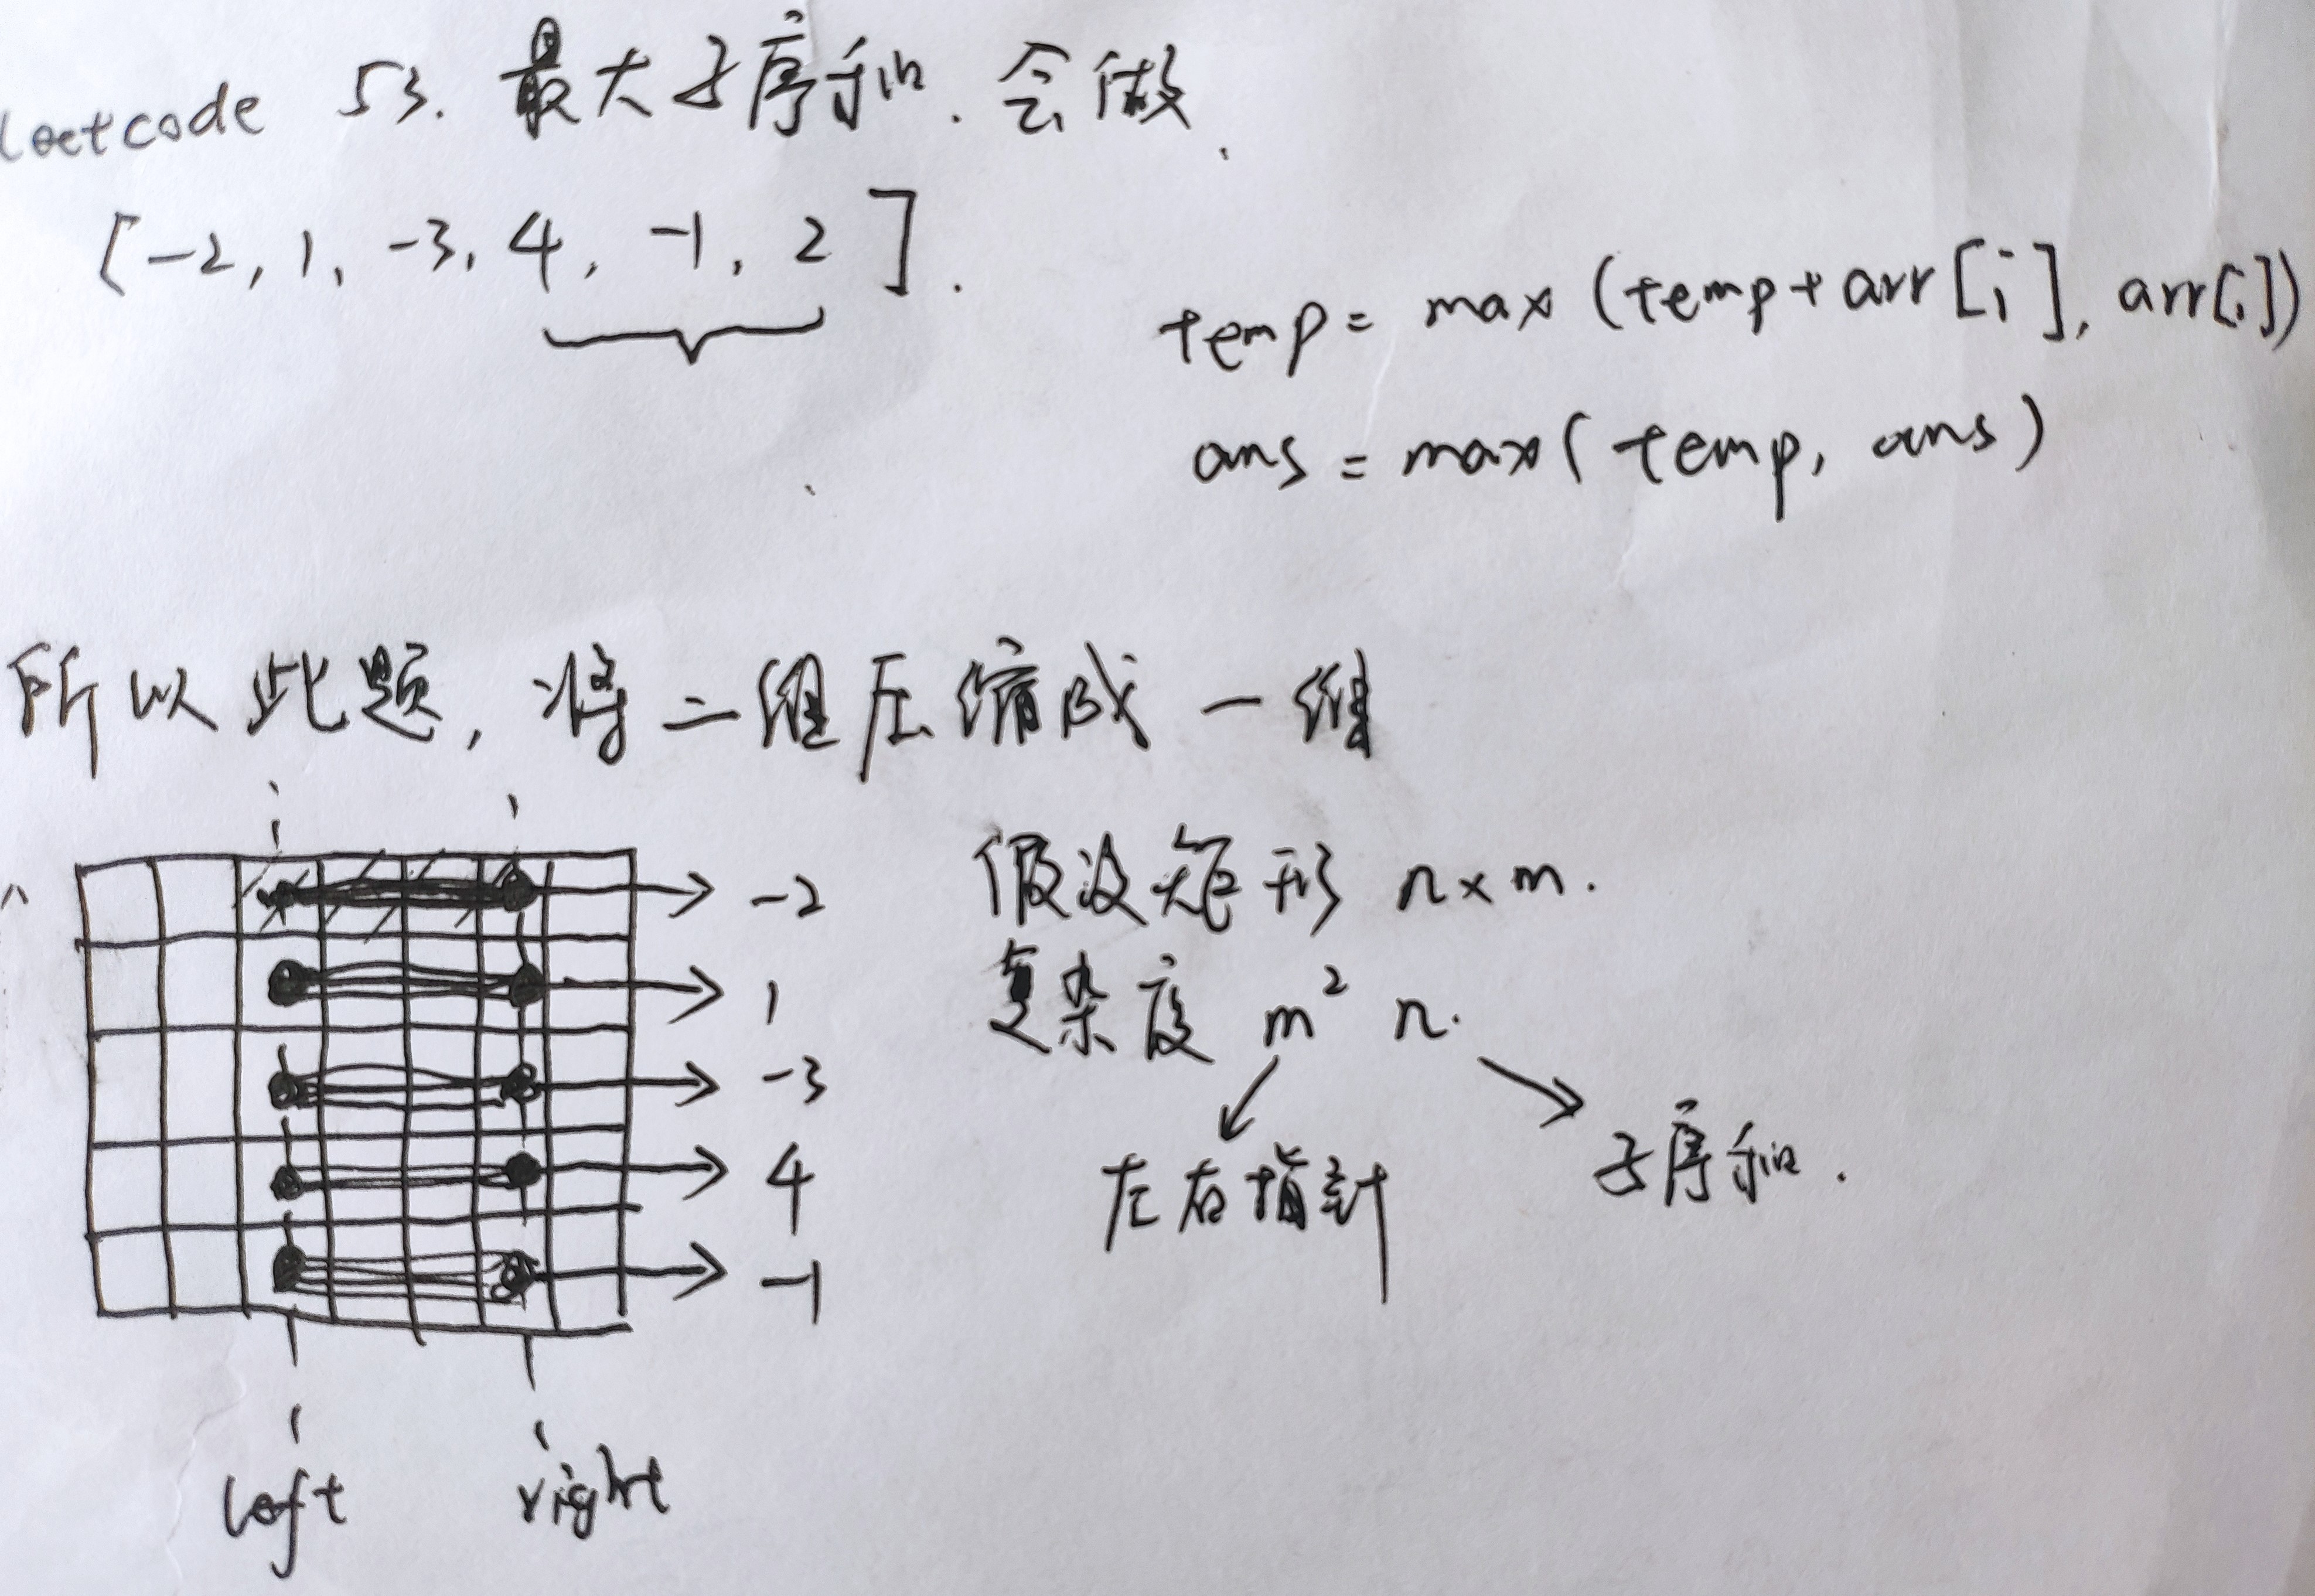 leetcode 53. 最大子序和. 会做.
[-2, 1, -3, 4, -1, 2].
temp = max (temp + arr[i], arr[i])
ans = max( temp, ans)
所以此题, 将二维压缩成一维
-2
1
-3
4
-1
left
right
假设矩形 n×m.
复杂度 m² n.
左右指针
子序和.